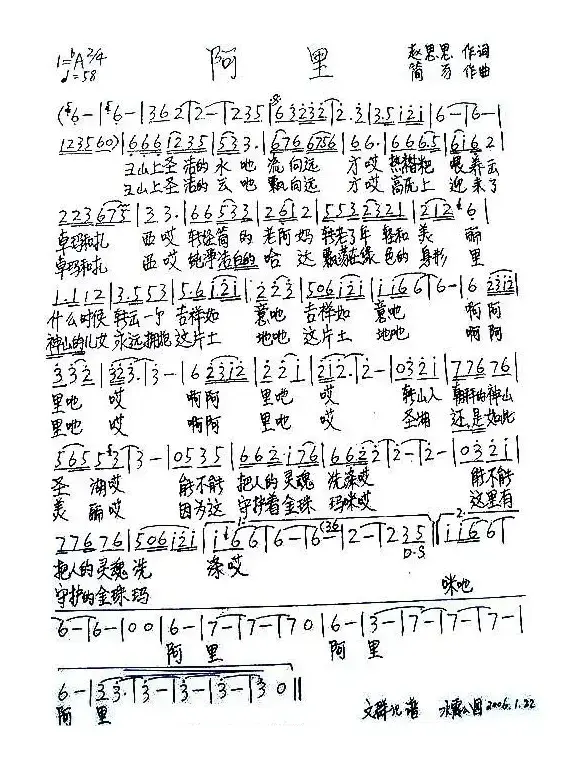 1=♭A 2/4
♩=58
阿 里
赵思思 作词
简 方 作曲
(6 - | 6 - | 3 6 2 | 2 - | 2 3 5 | 6 3 2 3 2 | 2 · 3 | 3 · 5 i 2 i | 6 - | 6 - |
1 2 3 5 6 0) | 6 6 6 1 2 3 5 | 5 3 3 · | 6 7 6 6 7 5 6 | 6 6 · | 6 6 6 5 | 6 i 6 2 |
山上圣洁的水 地 流向远 方哎 热糌粑 喂养云
山上圣洁的云 地 飘向远 方哎 高 上 迎来了
2 2 3 6 7 5 | 3 · 3 · | 6 6 5 3 3 | 2 6 1 2 | 5 5 3 2 3 2 1 | 2 1 2 6 |
卓玛和扎 西哎 转经筒 的 老阿妈 转老了年 轻和 美 丽
卓玛和扎 西哎 纯净洁白的 哈 达 色的 身影 里
1 · 1 1 2 | 3 · 5 5 3 | 5 · 6 i 2 i | 2 2 3 | 5 0 6 i 2 i | i i 6 6 | 6 - | 6 2 3 i 2 |
什么时候 转云一个 吉祥如 意地 吉祥如 意地 啊阿
神山的儿女 永远拥抱 这片土 地地 这片土 地地 啊阿
3 3 2 | 3 2 3 · | 3 - | 6 2 3 i 2 | 2 2 i | 2 i 2 · | 2 - | 0 3 2 i | 7 7 6 7 6 |
里地 哎 啊阿 里地 哎 转山人 朝拜的神山
里地 哎 啊阿 里地 哎 圣湖 还是如此
5 6 5 5 3 | 3 - | 0 5 3 5 | 6 6 2 i 7 6 | 6 6 2 2 | 2 - | 2 - | 0 3 2 i |
圣 湖哎 能不能 把人的灵魂 洗涤哎 能不能
美 丽哎 因为这 守护着金珠 玛咪哎 这里有
7 7 6 7 6 | 5 0 6 i 2 i | i 6 6 | 6 - | 6 - | 2 - | 2 3 5 | i i 6 6 |
D.S
把人的灵魂 洗 涤哎
守护的金珠玛
咪地
6 - | 6 - | 0 0 | 6 - | 7 - | 7 - | 7 0 | 6 - | 3 - | 7 - | 7 - | 7 - |
阿 里 阿 里
6 - | 3 3 · | 3 - | 3 - | 3 - | 3 0 ‖
阿 里
文群记谱 2006.1.22